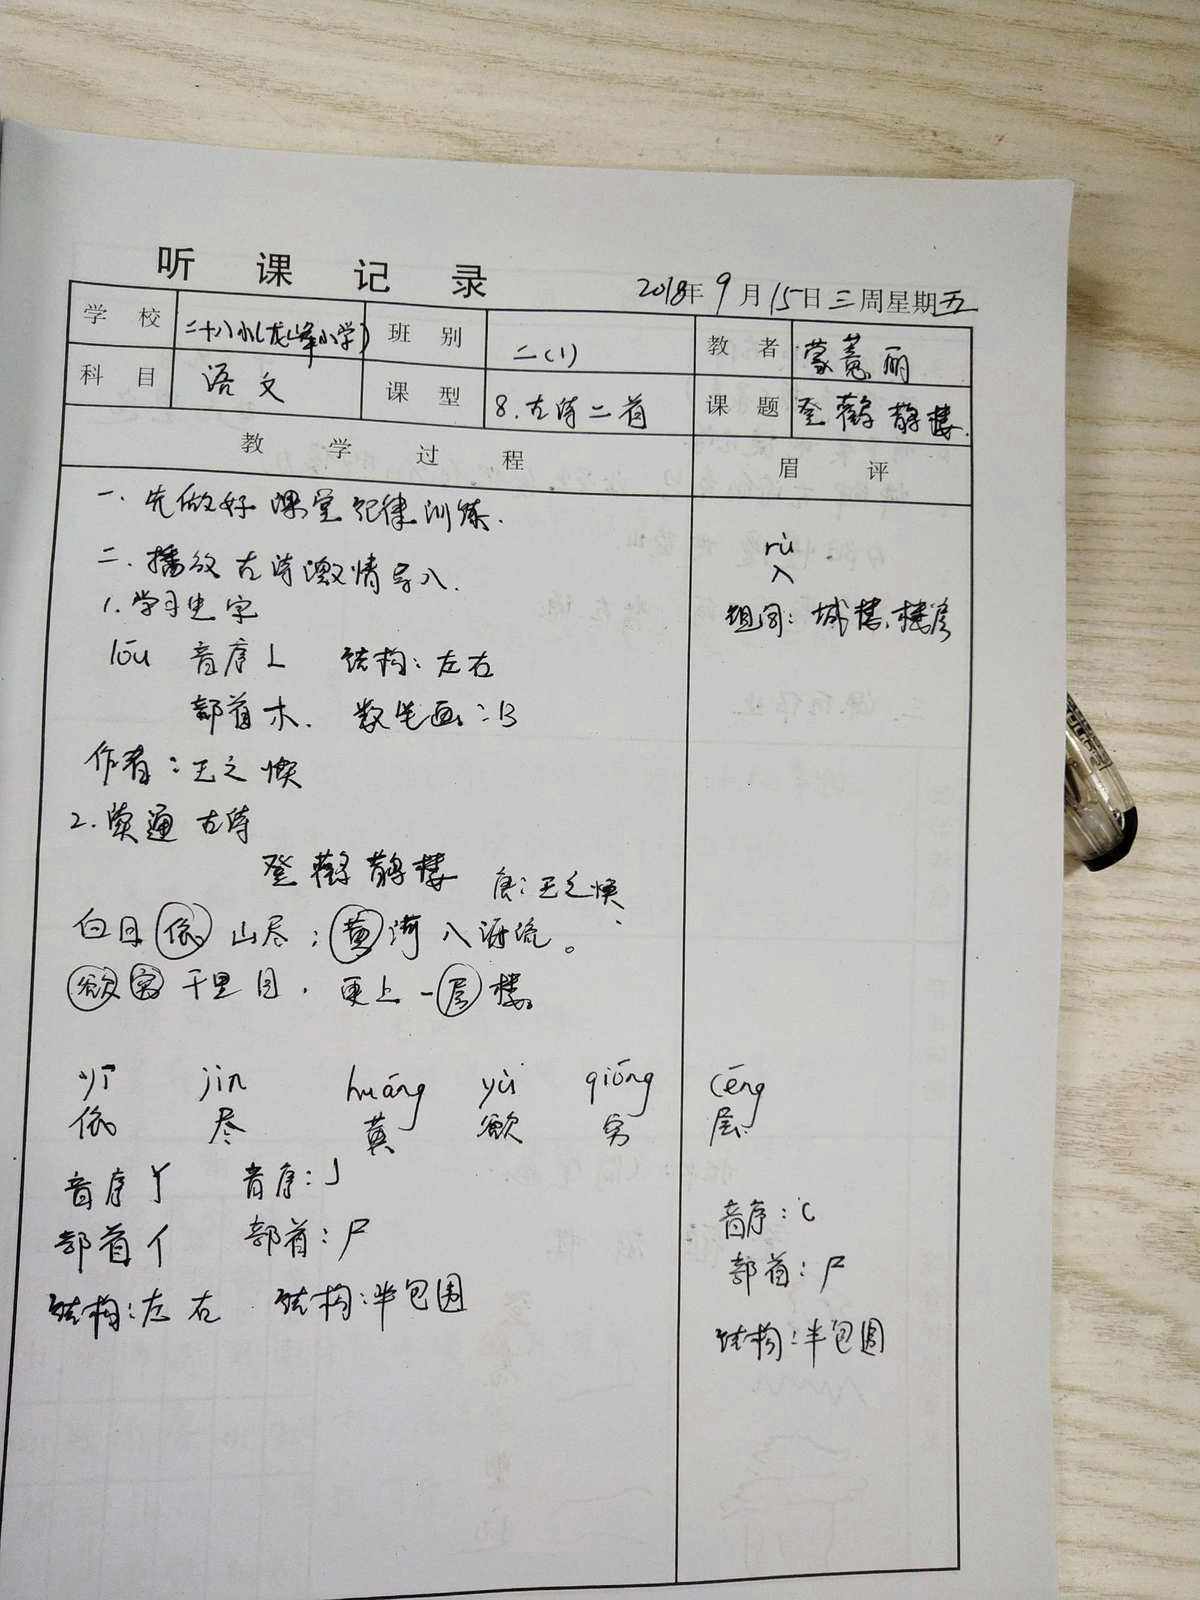 听课记录
2018年9月15日三周星期五
学校 二十八小(龙峰小学) 班别 二(1) 教者 蒙蕙丽
科目 语文 课型 8.古诗二首 课题 登鹳鹊楼.
教学过程 眉评
一.先做好课堂纪律训练.
二.播放古诗激情导入.
rù
入
1.学习生字
组词:城楼,楼房
lōu 音序L 结构:左右
部首木. 数笔画:13
作者:王之焕
2.读通古诗
登鹳鹊楼 唐:王之焕
白日依山尽;黄河入海流。
欲穷千里目,更上一层楼。
yī jìn huáng yù qióng céng
依 尽 黄 欲 穷 层
音序Y 音序:J
部首亻 部首:尸
结构:左右 结构:半包围
音序:C
部首:尸
结构:半包围